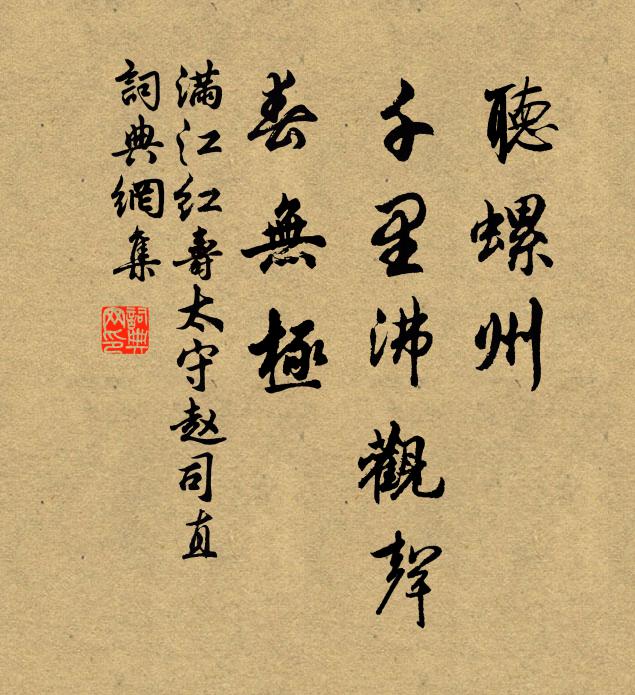 聽螺州
千里沸觀聲
春無極
滿江红壽太守赵司直
詞典網集
詞典网印